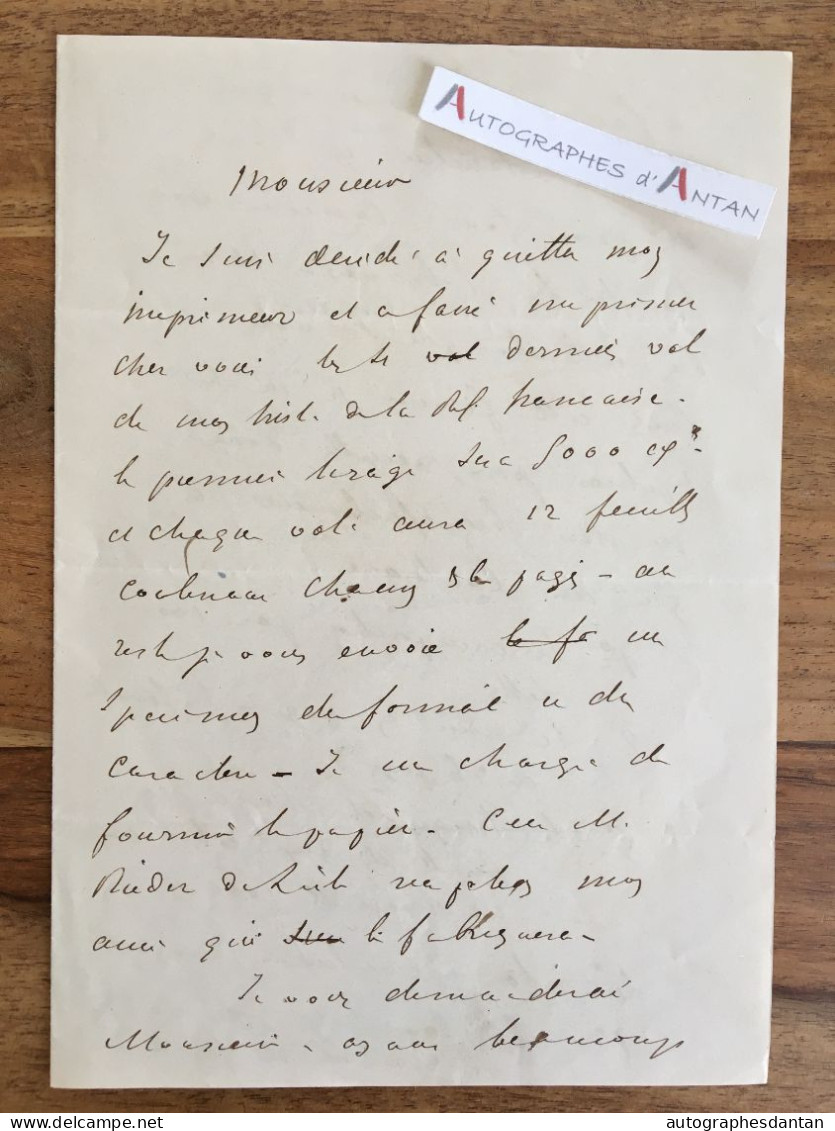 AUTOGRAPHES d'ANTAN
Monsieur
Je suis décidé à quitter mon
imprimeur et a faire imprimer
chez vous les vol derniers vol
de mon hist. de la Rev. française.
le premier tirage sera 5000 exres
et chaque vol. aura 12 feuilles
contenant chacun pages - au
reste je vous envoie le fo un
specimen du format et du
caractere - Je me charge de
fournir le papier - C'est M.
Rieder de mon
ami qui le fabriquera -
Je vous demanderai
Monsieur - ayant beaucoup
delcampe.net
autographesdantan